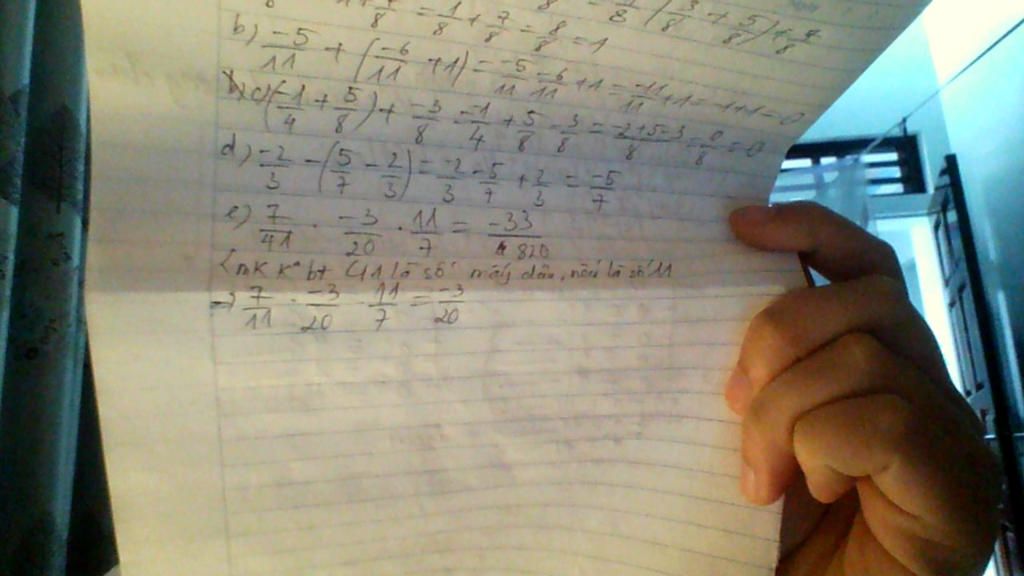 1/8 + 7/8 = 8/8 = 1
b) -5/11 + (-6/11 + 1) = -5/11 - 6/11 + 1 = -11/11 + 1 = -1 + 1 = 0
c) (-1/4 + 5/8) + -3/8 = -1/4 + 5/8 - 3/8 = -2+5-3/8 = 0/8 = 0
d) -2/3 - (5/7 - 2/3) = -2/3 - 5/7 + 2/3 = -5/7
e) 7/41 . -3/20 . 11/7 = -33/820
(mk k° bt 41 là số mấy đâu, nếu là số 11
=> 7/11 . -3/20 . 11/7 = -3/20